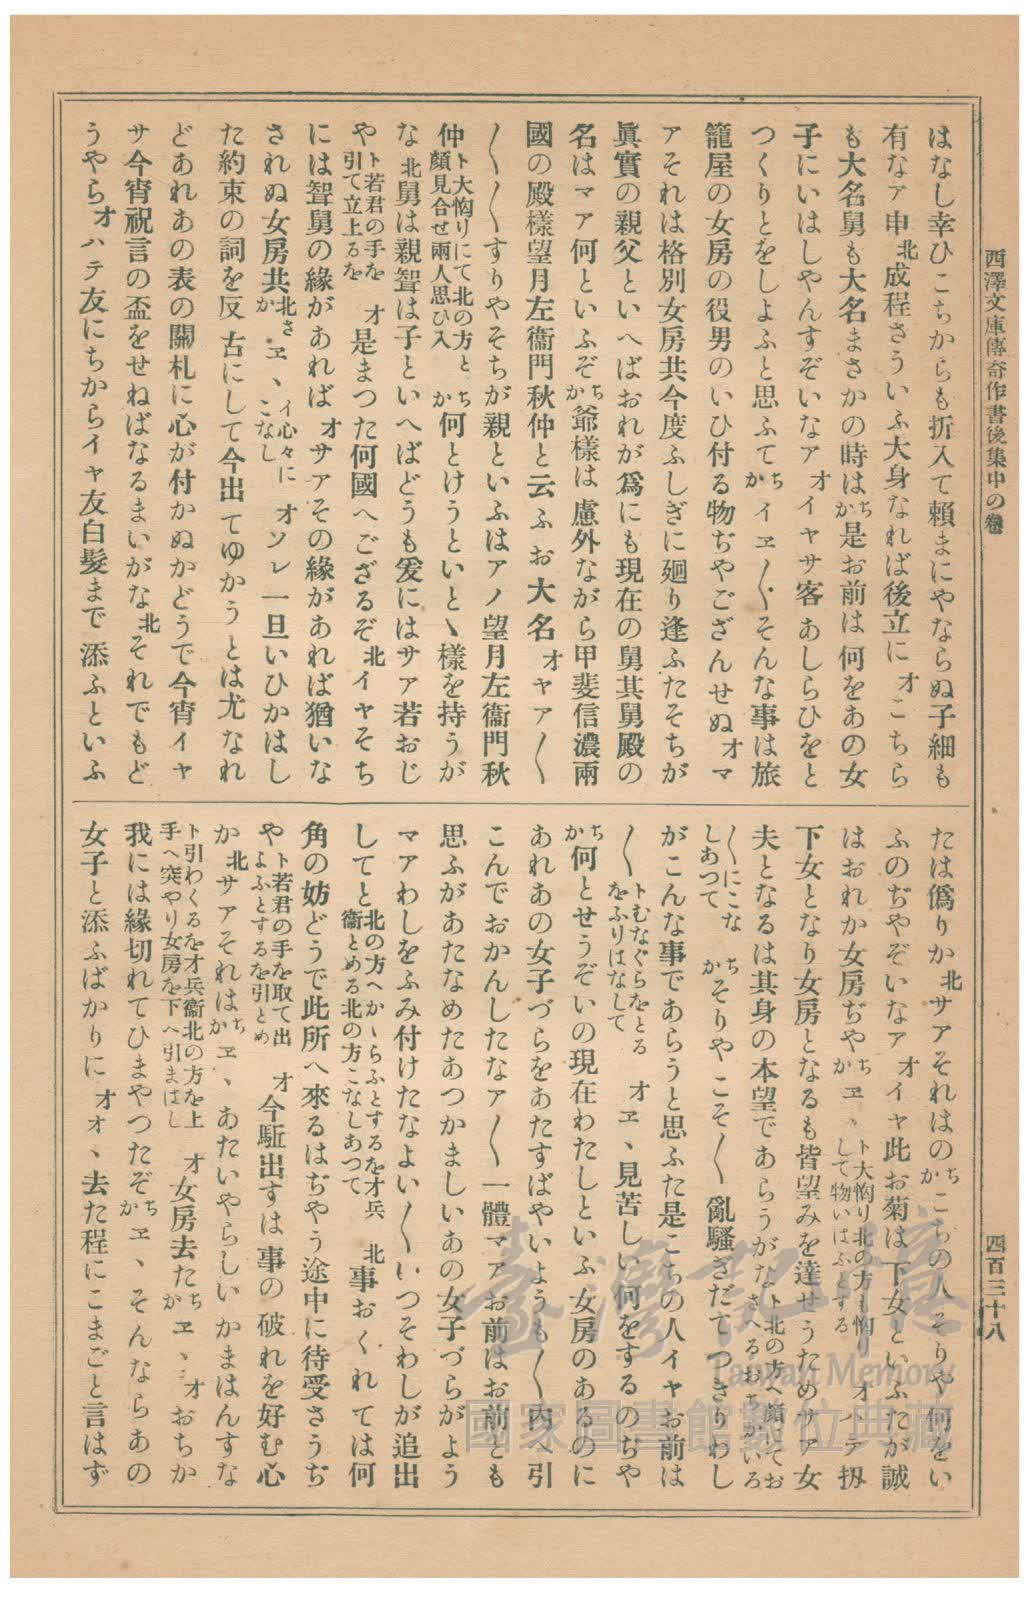 西澤文庫傳奇作書後集中の巻
四百三十八
はなし幸ひこちからも折入て頼まにやならぬ子細も
有なァ申北成程さういふ大身なれば後立にオこちら
も大名舅も大名まさかの時はちか是お前は何をあの女
子にいはしやんすぞいなアオイヤサ客あしらひをと
つくりとをしよふと思ふてちかイヱ〳〵そんな事は旅
籠屋の女房の役男のいひ付る物ぢやござんせぬオマ
アそれは格別女房共今度ふしぎに廻り逢ふたそちが
眞實の親父といへばおれが爲にも現在の舅其舅殿の
名はマア何といふぞちか爺樣は慮外ながら甲斐信濃兩
國の殿樣望月左衞門秋仲と云ふお大名オヤア〳〵
〳〵〳〵すりやそちが親といふはアノ望月左衞門秋
仲ト大恟りにて北の方と顔見合せ兩人思ひ入ちか何とけうといとゝ樣を持うが
な北舅は親聟は子といへばどうも爰にはサァ若おじ
やト若君の手を引て立上るをオ是まつた何國へござるぞ北イヤそち
には聟舅の緣があればオサアその緣があれば猶いな
されぬ女房共北さかヱヽイ心々にこなしオソレ一旦いひかはし
た約束の詞を反古にして今出てゆかうとは尤なれ
どあれあの表の關札に心が付かぬかどうで今宵イャ
サ今宵祝言の盃をせねばなるまいがな北それでもど
うやらオハテ友にちからイャ友白髮まで添ふといふ
たは僞りか北サアそれはのちかこちの人そりや何をい
ふのぢやぞいなアオイャ此お菊は下女といふたが誠
はおれか女房ぢやちかヱヽト大恟り北の方も恟りして物いはふとするオハテ扨
下女となり女房となるも皆望みを達せうためサァ女
夫となるは其身の本望であらうがなト北の方へ顔にておさへるおちかいろ
〳〵にこなしあつてちかそりやこそ〳〵亂騷さだてつきりわし
がこんな事であらうと思ふた是こちの人イャお前は
〳〵トむなぐらをとるをふりはなしてオヱヽ見苦しい何をするのぢや
ちか何とせうぞいの現在わたしといふ女房のあるのに
あれあの女子づらをあたすばやいようも〳〵内へ引
こんでおかんしたなァ〳〵一體マァお前はお前とも
思ふがあたなめたあつかましいあの女子づらがよう
マアわしをふみ付けたなよい〳〵いつそわしが追出
してと北の方へかゝらふとするを才兵衞とめる北の方こなしあつて北事おくれては何
角の妨どうで此所へ來るはぢやう途中に待受さうぢ
やト若君の手を取て出よふとするを引とめオ今駈出すは事の破れを好む心
か北サアそれはちかヱヽあたいやらしいかまはんすな
ト引わくるを才兵衞北の方を上手へ突やり女房を下へ引まはしオ女房去たちかヱヽオおちか
我には緣切れてひまやつたぞちかヱヽそんならあの
女子と添ふばかりにオオヽ去た程にこまごと言はず
臺灣記憶
Taiwan Memory
國家圖書館數位典藏